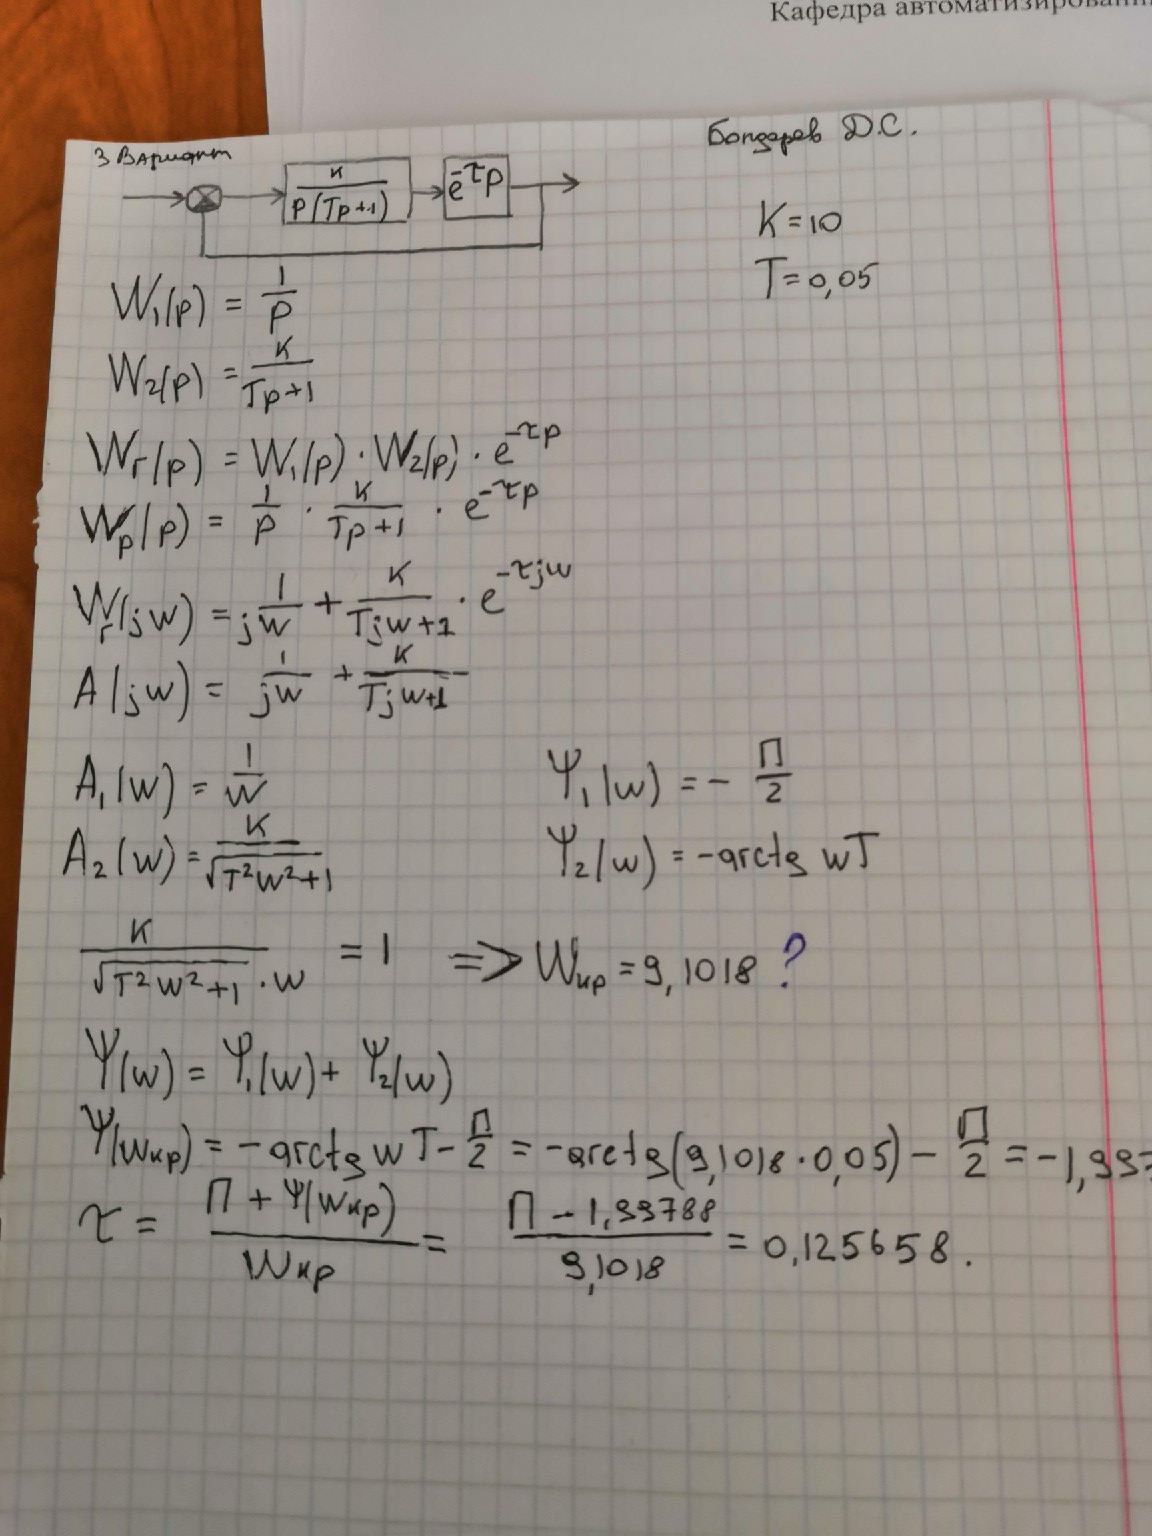 Кафедра автоматизирован
3 Вариант
Бондарев Д.С.
K/(p(Tp+1))
e^-τp
K=10
T=0,05
W₁(p) = 1/p
W₂(p) = K/(Tp+1)
Wг(p) = W₁(p) · W₂(p) · e^-τp
Wp(p) = 1/p · K/(Tp+1) · e^-τp
Wг(jw) = j 1/w + K/(Tjw+1) · e^-τjw
A(jw) = 1/jw + K/(Tjw+1)
A₁(w) = 1/w
Ψ₁(w) = - П/2
A₂(w) = K/√(T²w²+1)
Ψ₂(w) = -arctg wT
K/(√(T²w²+1) · w) = 1 => Wкр = 9,1018 ?
Ψ(w) = Ψ₁(w) + Ψ₂(w)
Ψ(wкр) = -arctg wT - П/2 = -arctg(9,1018·0,05) - П/2 = -1,997
τ = (П + Ψ(wкр))/Wкр = (П - 1,99788)/9,1018 = 0,125658.